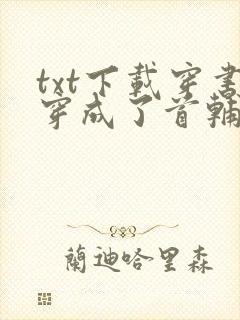 txt下載穿書
穿成了首輔
蘭迪哈里森